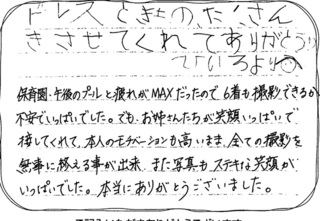 ドレスときもの、たくさん
きさせてくれてありがとう
ひいろより
保育園・午後のプールと疲れがMAXだったので6着も撮影できるか
不安でいっぱいでした。でも、お姉さんたちが笑顔いっぱいで
接してくれて、本人のモチベーションも高いまま、全ての撮影を
無事に終える事が出来、また写真もステキな笑顔が
いっぱいでした。本当にありがとうございました。